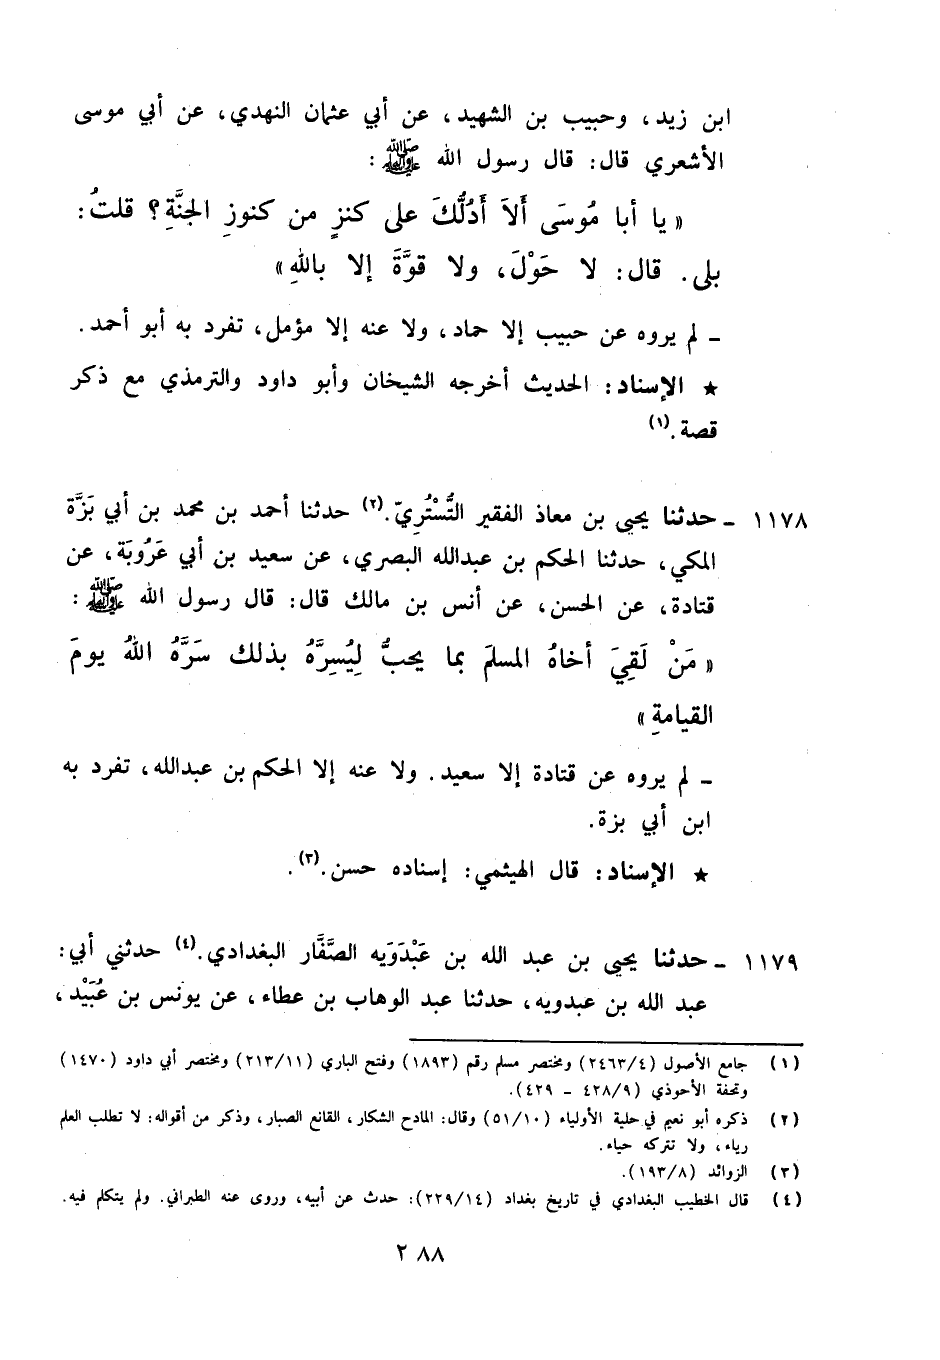 ابن زيد، وحبيب بن الشهيد، عن أبي عثمان النهدي، عن أبي موسى
الأشعري قال: قال رسول الله ﷺ :
« يا أبا مُوسَى أَلاَ أَدُلُّكَ على كنزٍ من كنوزِ الجنَّةِ؟ قلتُ:
بلى. قال: لا حَوْلَ، ولا قوَّةَ إلا باللهِ»
ـ لم يروه عن حبيب إلا حماد، ولا عنه إلا مؤمل، تفرد به أبو أحمد.
★ الإسناد: الحديث أخرجه الشيخان وأبو داود والترمذي مع ذكر
قصة.(١)
١١٧٨ ـ حدثنا يحيى بن معاذ الفقير التُّسْتُريّ.(٢) حدثنا أحمد بن محمد بن أبي بَزَّة
المكي، حدثنا الحكم بن عبدالله البصري، عن سعيد بن أبي عَرُوبَة، عن
قتادة، عن الحسن، عن أنس بن مالك قال: قال رسول الله ﷺ :
« مَنْ لَقِيَ أخاهُ المسلمَ بما يحبُّ لِيُسِرَّهُ بذلك سَرَّهُ اللهُ يومَ
القيامةِ»
ـ لم يروه عن قتادة إلا سعيد. ولا عنه إلا الحكم بن عبدالله، تفرد به
ابن أبي بزة.
★ الإسناد: قال الهيثمي: إسناده حسن.(٣).
١١٧٩ ـ حدثنا يحيى بن عبد الله بن عَبْدَوَيه الصَّفَّار البغدادي.(٤) حدثني أبي:
عبد الله بن عبدويه، حدثنا عبد الوهاب بن عطاء، عن يونس بن عُبَيْد،
(١) جامع الأصول (٢٤٦٣/٤) ومختصر مسلم رقم (١٨٩٣) وفتح الباري (٢١٣/١١) ومختصر أبي داود (١٤٧٠)
وتحفة الأحوذي (٤٢٨/٩ ـ ٤٢٩).
(٢) ذكره أبو نعيم في حلية الأولياء (٥١/١٠) وقال: المادح الشكار، القانع الصبار، وذكر من أقواله: لا تطلب العلم
رياء، ولا تتركه حياء.
(٣) الزوائد (١٩٣/٨).
(٤) قال الخطيب البغدادي في تاريخ بغداد (٢٢٩/١٤): حدث عن أبيه، وروى عنه الطبراني. ولم يتكلم فيه.
٢٨٨